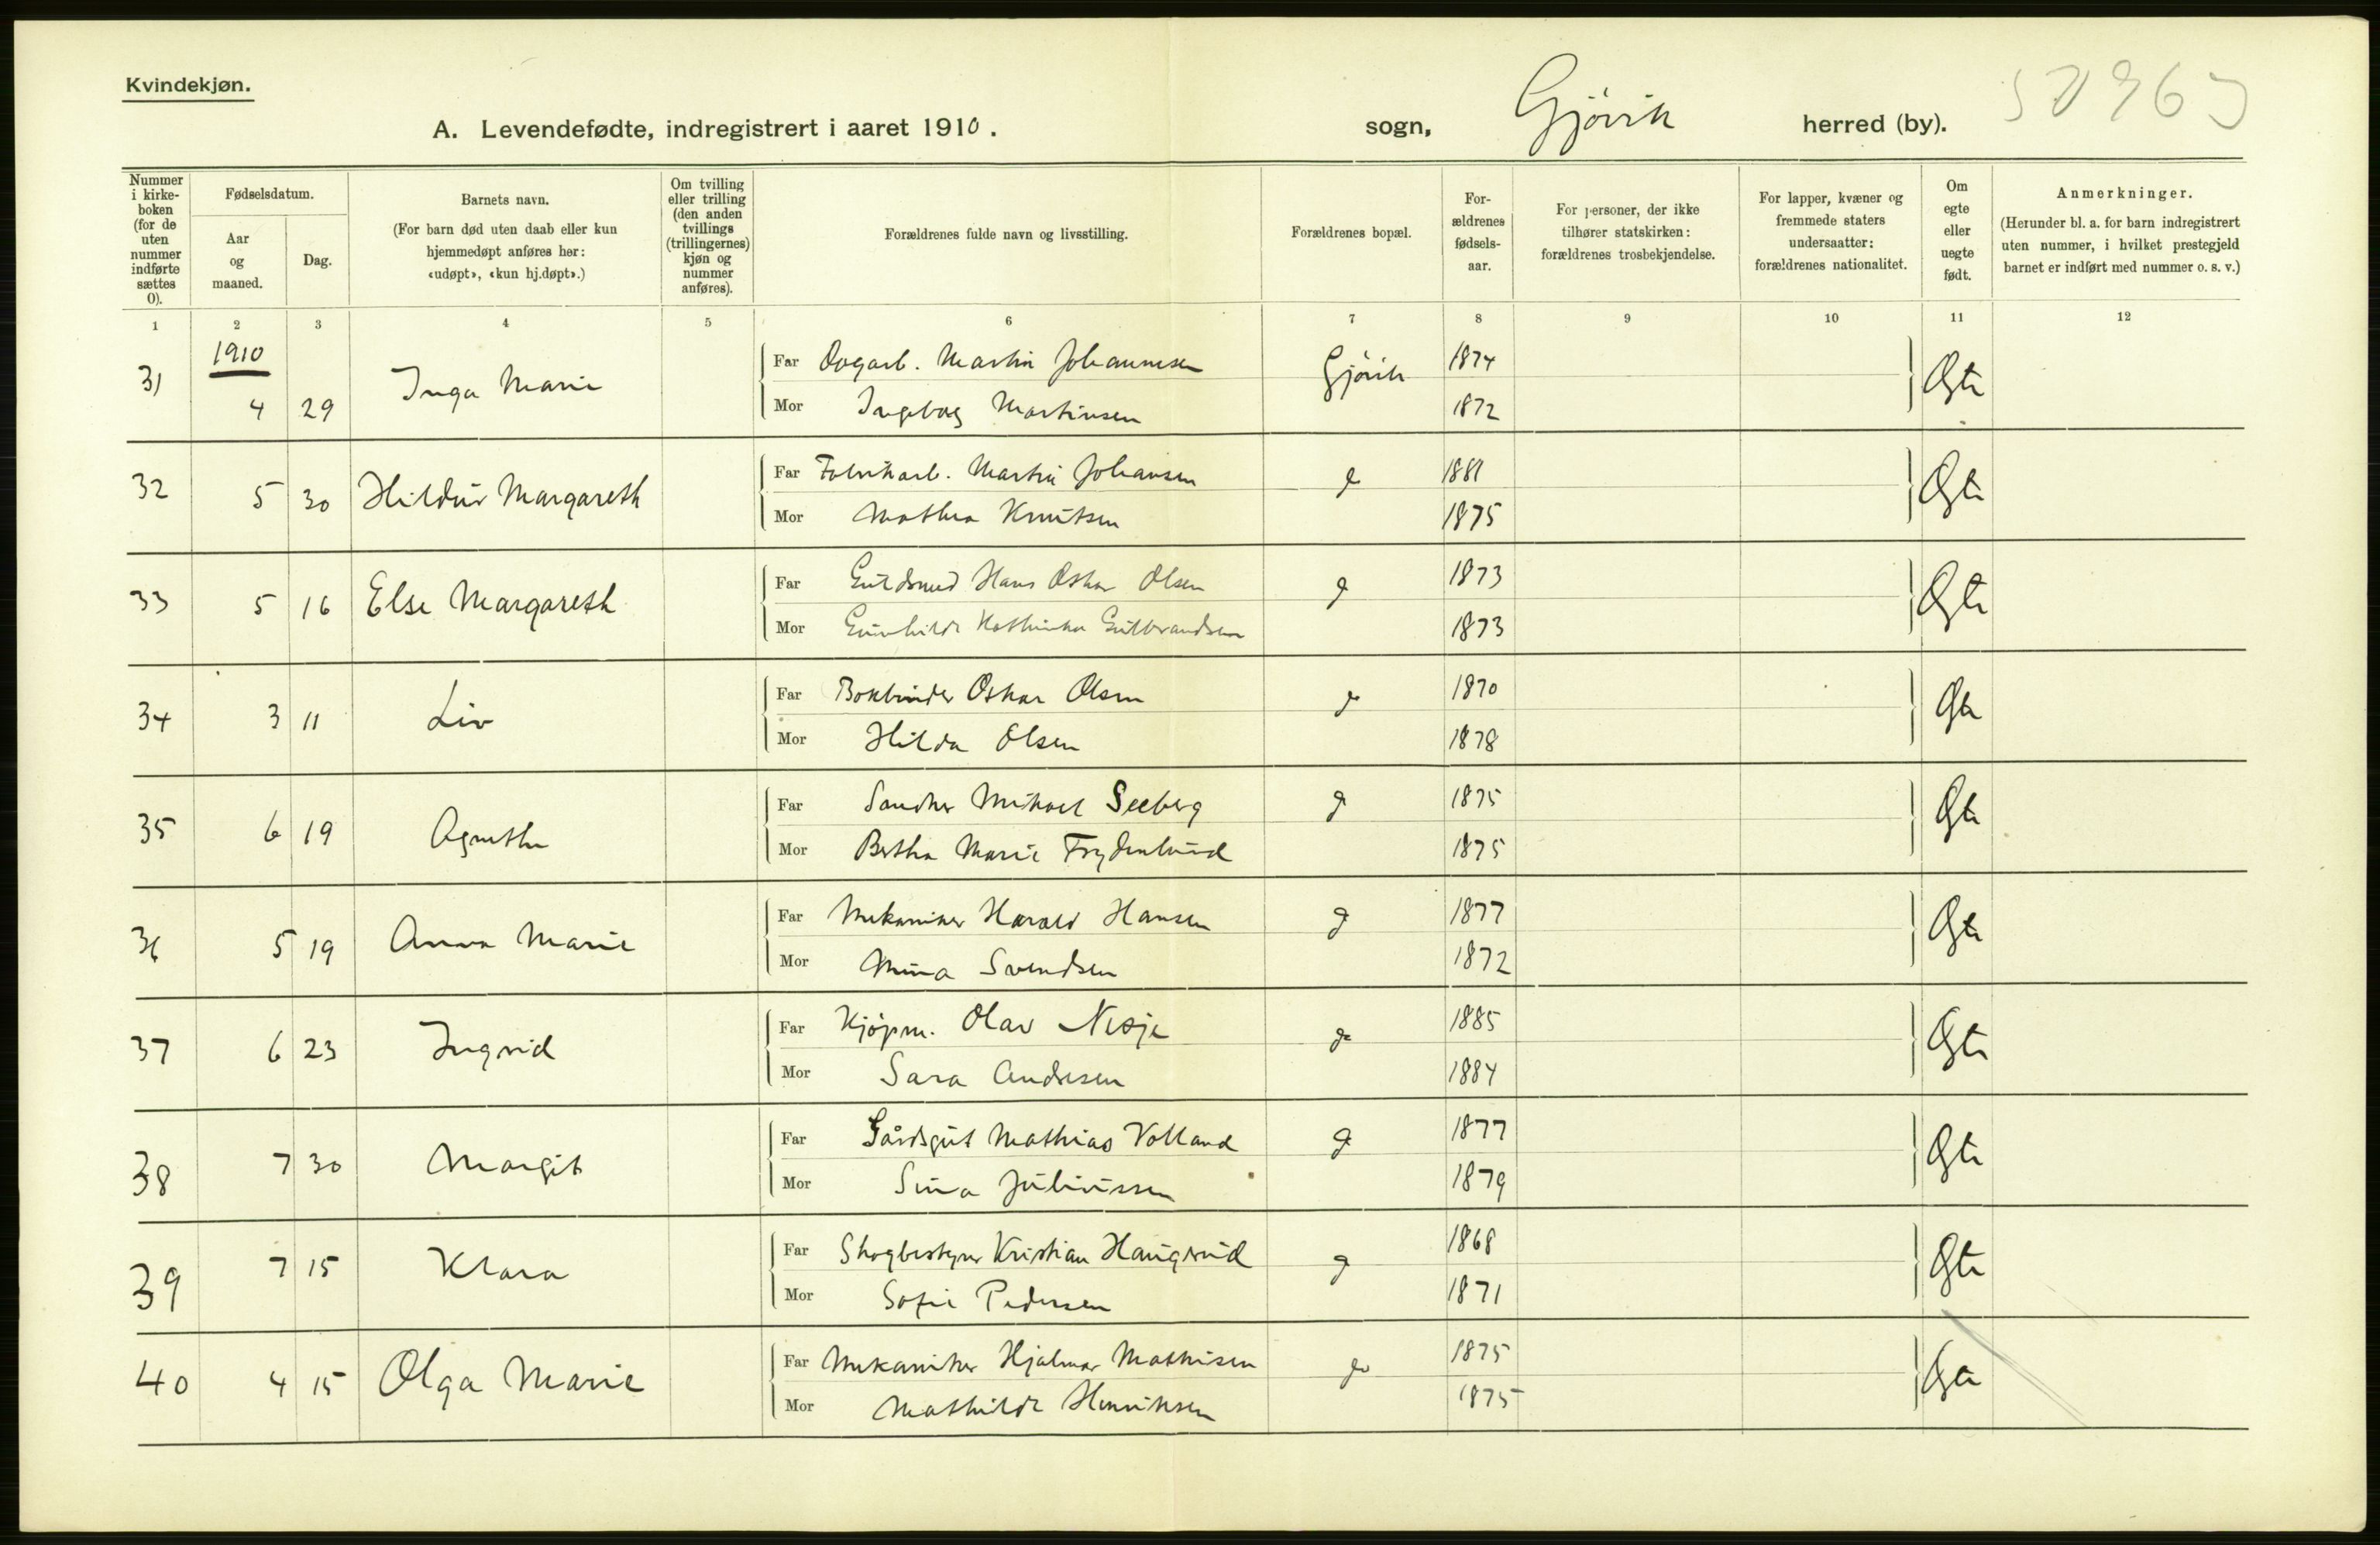 Kvindekjøn.
A. Levendefødte, indregistrert i aaret 1910. sogn, Gjøvik herred (by).
Nummer i kirkeboken (for de uten nummer indførte sættes 0).
Fødselsdatum.
Aar og maaned.
Dag.
Barnets navn.
(For barn død uten daab eller kun hjemmedøpt anføres her: «udøpt», «kun hj.døpt».)
Om tvilling eller trilling (den anden tvillings (trillingernes) kjøn og nummer anføres).
Forældrenes fulde navn og livsstilling.
Forældrenes bopæl.
Forældrenes fødselsaar.
For personer, der ikke tilhører statskirken: forældrenes trosbekjendelse.
For lapper, kvæner og fremmede staters undersaatter: forældrenes nationalitet.
Om egte eller uegte født.
Anmerkninger.
(Herunder bl. a. for barn indregistrert uten nummer, i hvilket prestegjeld barnet er indført med nummer o. s. v.)
1 2 3 4 5 6 7 8 9 10 11 12
1910
31 4 29 Inga Marie Far Dagarb. Martin Johannesen Gjøvik 1874 Egte
Mor Ingeborg Martinsen 1872
32 5 30 Hildur Margareth Far Fabrikarb. Martin Johansen 1881 Egte
Mor Mathea Knutsen 1875
33 5 16 Else Margareth Far Guldsmed Hans Oskar Olsen 1873 Egte
Mor Gunhilde Kathinka Gulbrandsen 1873
34 3 11 Liv Far Bokbinder Oskar Olsen 1870 Egte
Mor Hilda Olsen 1878
35 6 19 Agnethe Far Mikael Seeberg 1875 Egte
Mor Bertha Marie Frydenlund 1875
36 5 19 Anna Marie Far Mekaniker Harald Hansen 1877 Egte
Mor Mina Svendsen 1872
37 6 23 Ingrid Far Kjøpm. Olav Nesje 1885 Egte
Mor Sara Andresen 1884
38 7 30 Margit Far Gårdsgut Mathias Volland 1877 Egte
Mor Sina Juliussen 1879
39 7 15 Klara Far Skogbestyrer Kristian Haugsrud 1868 Egte
Mor Sofie Pedersen 1871
40 4 15 Olga Marie Far Mekaniker Hjalmar Mathisen 1875 Egte
Mor Mathilde Henriksen 1875